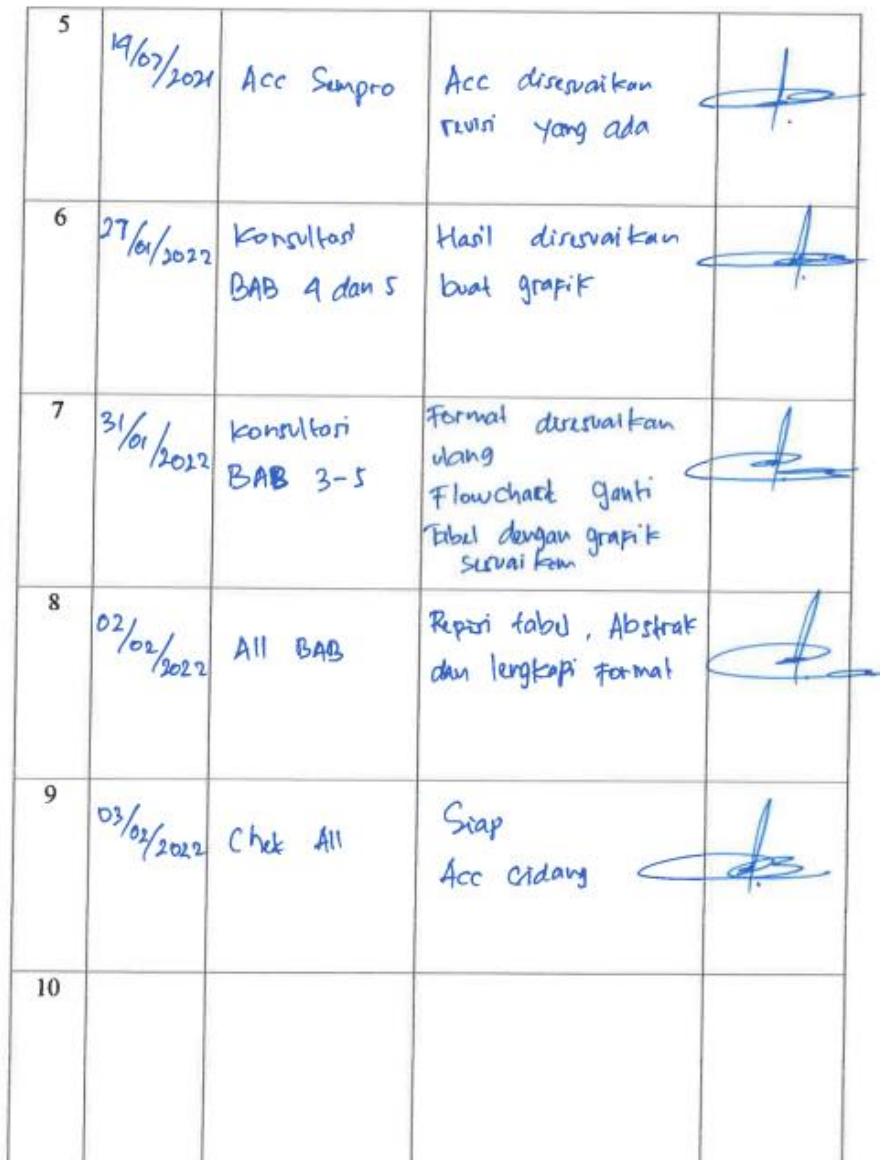 5
19/07/2021
Acc Sempro
Acc disesuaikan
revisi yang ada
6
27/01/2022
Konsultasi
BAB 4 dan 5
Hasil disesuaikan
buat grafik
7
31/01/2022
Konsultasi
BAB 3-5
Format disesuaikan
ulang
Flowchart ganti
Tabel dengan grafik
sesuaikan
8
02/02/2022
All BAB
Repisi tabel, Abstrak
dan lengkapi Format
9
03/02/2022
Chek All
Siap
Acc Sidang
10